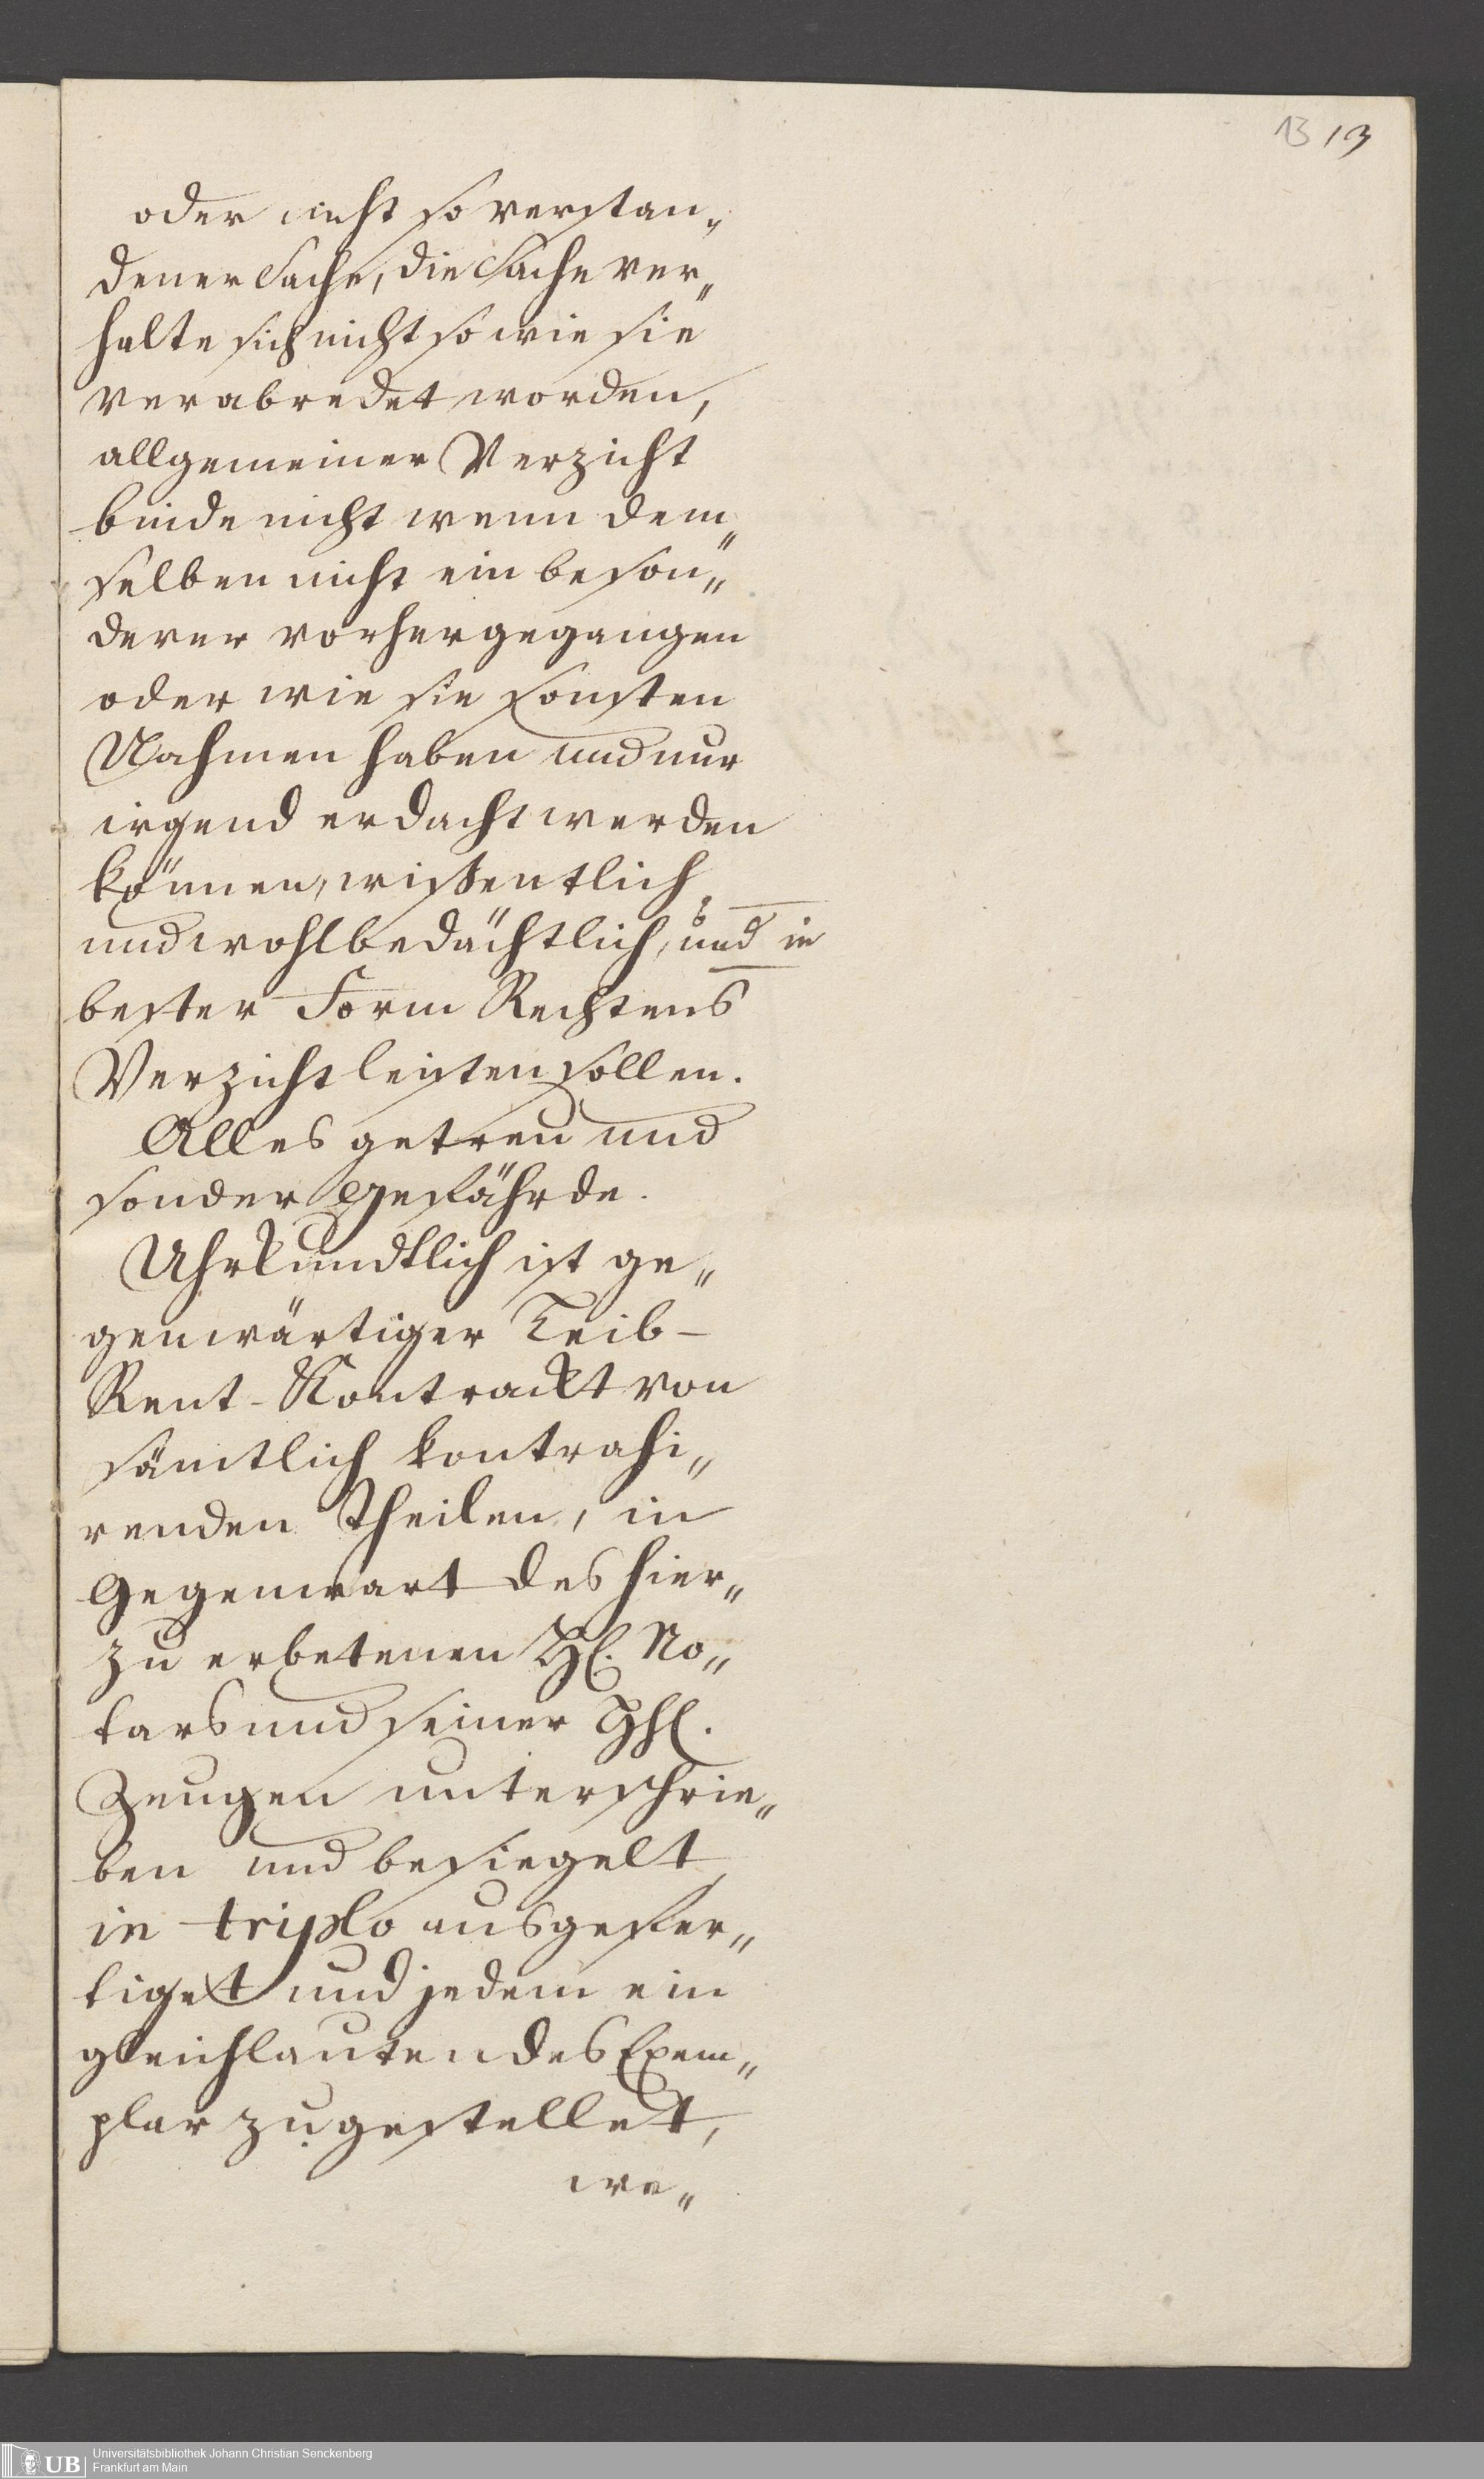 13 13
oder nicht so verstan„
dener Sache, die Sache ver„
halte sich nicht so wie sie
verabredet worden,
allgemeiner Verzicht
binde nicht wenn dem„
selben nicht ein beson„
derer vorhergegangen
oder wie sie sonsten
Nahmen haben und nur
irgend erdacht werden
können, wißentlich
und wohlbedächtlich, und in
bester Form Rechtens
Verzicht leisten sollen.
Alles getreu und
sonder Gefährde.
Uhrkundtlich ist ge„
genwärtiger Leib-
Rent-Kontrackt von
sämtlich kontrahi„
renden Theilen, in
Gegenwart des hier„
zu erbetenen H. No„
tars und seiner HH.
Zeugen unterschrie„
ben und besiegelt
in triplo ausgefer„
tiget und jedem ein
gleichlautendes Exem„
plar zugestellet,
we„
UB
Universitätsbibliothek Johann Christian Senckenberg
Frankfurt am Main